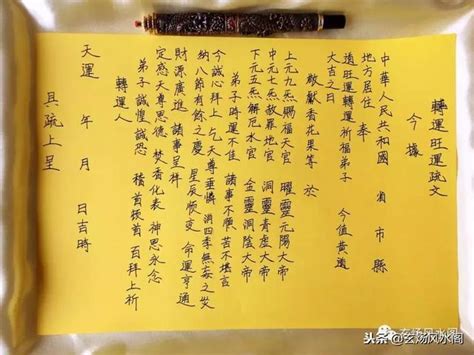 轉運旺運疏文
今據
中華人民共和國　省　市　縣
地方居住　奉
道旺運轉運祈福弟子　今值黃道
大吉之日
敬獻香花果等　於
上元九炁賜福天官　曜靈元陽大帝
中元七炁赦罪地官　洞靈青虛大帝
下元五炁解厄水官　金靈洞陰大帝
弟子時運不佳　諸事不順　苦不堪言
今誠心拜上　乞天尊垂憐　消四季無妄之災
納八節有餘之慶　星辰順度　命運亨通
財源廣進　諸事呈祥
定感天尊恩德　焚香化表　神恩永念
弟子誠惶誠恐　稽首頓首　百拜上祈
轉運人
天運　年　月　日吉時
具疏上呈
玄殇风水阁
头条@玄殇风水阁